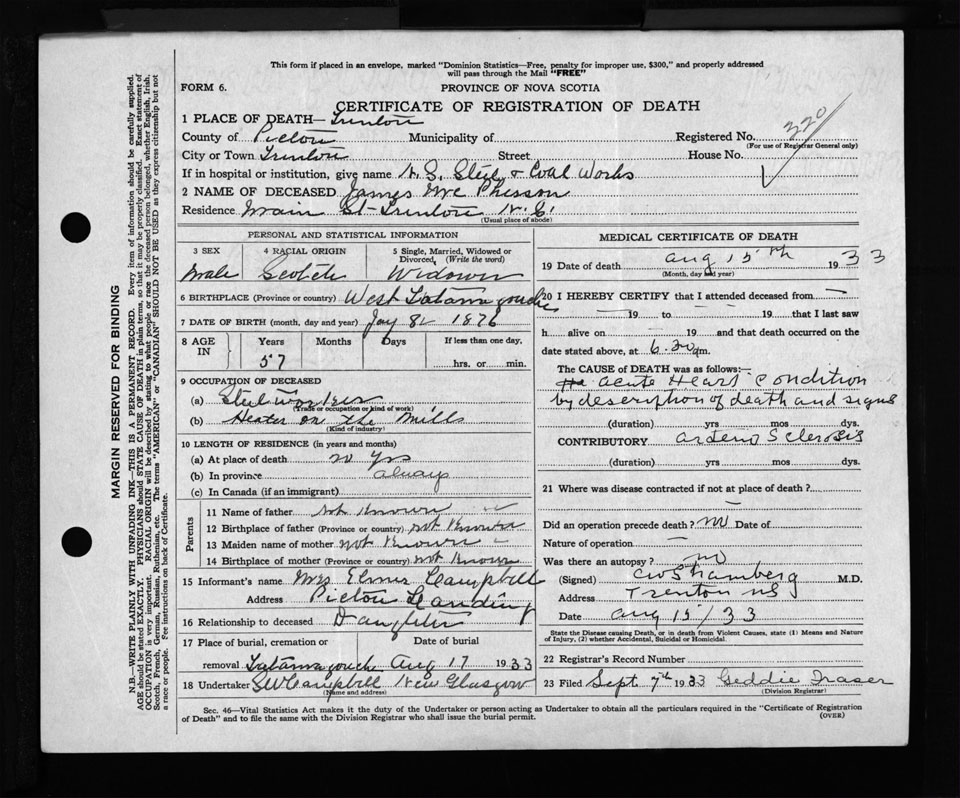 This form if placed in an envelope, marked "Dominion Statistics—Free, penalty for improper use, $300," and properly addressed
will pass through the Mail "FREE"
FORM 6.
PROVINCE OF NOVA SCOTIA
CERTIFICATE OF REGISTRATION OF DEATH
1 PLACE OF DEATH— Trenton
County of Pictou Municipality of Registered No. 320
(For use of Registrar General only)
City or Town Trenton Street House No.
If in hospital or institution, give name N. S. Steel & Coal Works
2 NAME OF DECEASED James Mc Pherson
Residence Main St Trenton N. S.
(Usual place of abode)
PERSONAL AND STATISTICAL INFORMATION
3 SEX 4 RACIAL ORIGIN 5 Single, Married, Widowed or Divorced, (Write the word)
Male Scotch Widower
6 BIRTHPLACE (Province or country) West Tatamagouche
7 DATE OF BIRTH (month, day and year) 1876
8 AGE IN Years Months Days If less than one day,
57 hrs. or min.
9 OCCUPATION OF DECEASED
(a) Steel worker
(Trade or occupation or kind of work)
(b) Heater on the Mills
(Kind of industry)
10 LENGTH OF RESIDENCE (in years and months)
(a) At place of death Yrs
(b) In province always
(c) In Canada (if an immigrant)
Parents
11 Name of father Not Known
12 Birthplace of father (Province or country) not Known
13 Maiden name of mother not Known
14 Birthplace of mother (Province or country) not Known
15 Informant's name Mrs Elmer Campbell
Address Pictou Landing
16 Relationship to deceased Daughter
17 Place of burial, cremation or Date of burial
removal Tatamagouche Aug 17 1933
18 Undertaker SW Campbell New Glasgow
(Name and address)
MEDICAL CERTIFICATE OF DEATH
19 Date of death Aug 15th 1933
(Month, day and year)
20 I HEREBY CERTIFY that I attended deceased from —
— 19 to — 19 that I last saw
h alive on — 19 and that death occurred on
date stated above, at 6.20 m.
The CAUSE OF DEATH was as follows:—
acute Heart Condition
by description of death and signs
(duration) yrs mos dys.
CONTRIBUTORY Sclerosis
(duration) yrs mos dys.
21 Where was disease contracted if not at place of death?
—
Did an operation precede death? no Date of
Nature of operation —
Was there an autopsy? no
(Signed) M.D.
Address Trenton NS
Date Aug 15/33
State the Disease causing Death, or in death from Violent Causes, state (1) Means and Nature
of Injury, (2) whether Accidental, Suicidal or Homicidal.
22 Registrar's Record Number
23 Filed Sept 7th 1933 Geddie Fraser
(Division Registrar)
Sec. 46—Vital Statistics Act makes it the duty of the Undertaker or person acting as Undertaker to obtain all the particulars required in the "Certificate of Registration
of Death" and to file the same with the Division Registrar who shall issue the burial permit.
(OVER)
MARGIN RESERVED FOR BINDING
N.B.—WRITE PLAINLY WITH UNFADING INK—THIS IS A PERMANENT RECORD. Every item of information should be carefully supplied.
AGE should be stated EXACTLY. PHYSICIANS should STATE CAUSE OF DEATH in plain terms, so that it may be properly classified. Exact statement of
OCCUPATION is very important. RACIAL ORIGIN will be described by stating to what people or race the deceased person belonged, whether English, Irish,
Scotch, French, German, Russian, Ruthenian, etc. The terms "AMERICAN" or "CANADIAN" SHOULD NOT BE USED as they express citizenship but not
a race or people. Fee instructions on back of Certificate.